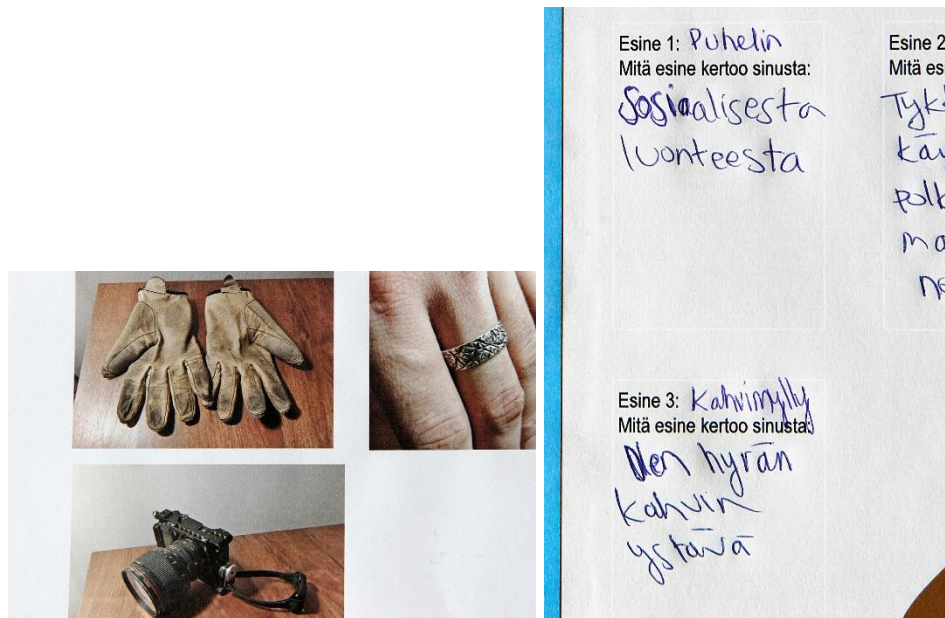 Esine 1: Puhelin
Mitä esine kertoo sinusta:
Sosiaalisesta
luonteesta
Esine 2
Mitä esi
Tyk
käv
polk
ma
ne
Esine 3: Kahvimylly
Mitä esine kertoo sinusta:
Olen hyvän
kahvin
ystävä